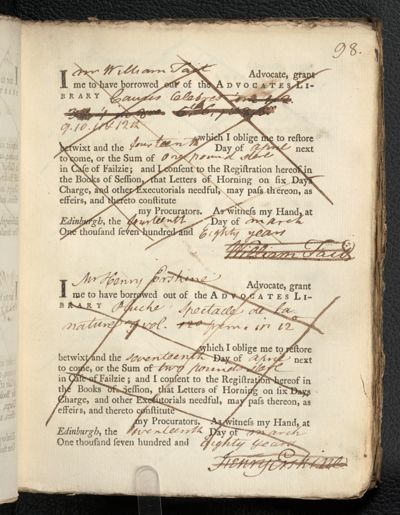 98.
I Mr William Tait Advocate, grant
me to have borrowed out of the ADVOCATES LI-
BRARY Causes Celebres
9. 10. 12th
which I oblige me to reſtore
betwixt and the fourteenth Day of April next
to come, or the Sum of One pound Ster
in Caſe of Failzie; and I conſent to the Regiſtration hereof in
the Books of Seſſion, that Letters of Horning on ſix Days
Charge, and other Executorials needful, may paſs thereon, as
effeirs, and thereto conſtitute
my Procurators. As witneſs my Hand, at
Edinburgh, the fourteenth Day of march
One thouſand ſeven hundred and Eighty years
William Tait
I Mr Henry Erskine Advocate, grant
me to have borrowed out of the ADVOCATES LI-
BRARY Pluche Spectacle de la
nature 9 vol. in 12
which I oblige me to reſtore
betwixt and the seventeenth Day of april next
to come, or the Sum of two pounds Ster
in Caſe of Failzie; and I conſent to the Regiſtration hereof in
the Books of Seſſion, that Letters of Horning on ſix Days
Charge, and other Executorials needful, may paſs thereon, as
effeirs, and thereto conſtitute
my Procurators. As witneſs my Hand, at
Edinburgh, the seventeenth Day of march
One thouſand ſeven hundred and Eighty years
Henry Erskine